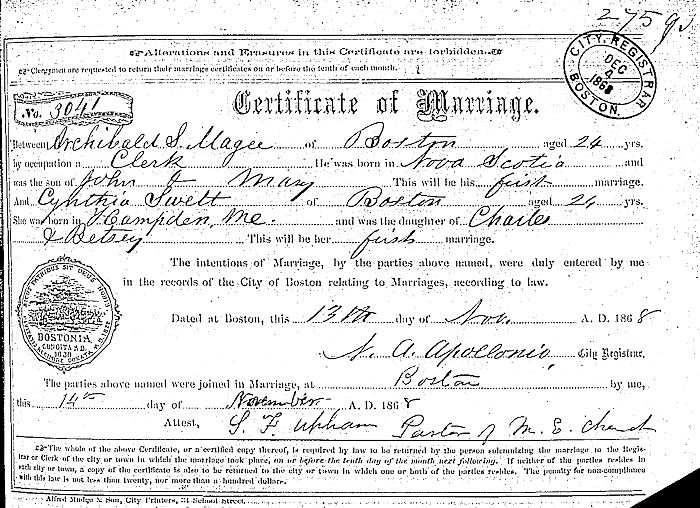 275
Alterations and Erasures in this Certificate are forbidden.
Clergymen are requested to return their marriage certificates on or before the tenth of each month.
CITY REGISTRAR
DEC
4
1868
BOSTON.
No. 3041
Certificate of Marriage.
Between Archibald S. Magee of Boston aged 24 yrs.
by occupation a Clerk He was born in Nova Scotia and
was the son of John & Mary This will be his first marriage.
And Cynthia Swett of Boston aged 24 yrs.
She was born in Hampden, Me. and was the daughter of Charles
& Betsey This will be her first marriage.
The intentions of Marriage, by the parties above named, were duly entered by me
in the records of the City of Boston relating to Marriages, according to law.
BOSTONIA
CONDITA A.D.
1630
Dated at Boston, this 13th day of Nov. A. D. 1868
N. A. Apollonio, City Registrar.
The parties above named were joined in Marriage, at Boston by me,
this 14th day of November A. D. 1868
Attest, S. F. Upham Pastor of M. E. Church
The whole of the above Certificate, or a certified copy thereof, is required by law to be returned by the person solemnizing the marriage to the Regis-
trar or Clerk of the city or town in which the marriage took place, on or before the tenth day of the month next following. If neither of the parties resides in
such city or town, a copy of the certificate is also to be returned to the city or town in which one or both of the parties resides. The penalty for non-compliance
with this law is not less than twenty, nor more than a hundred dollars.
Alfred Mudge & Son, City Printers, 34 School Street.